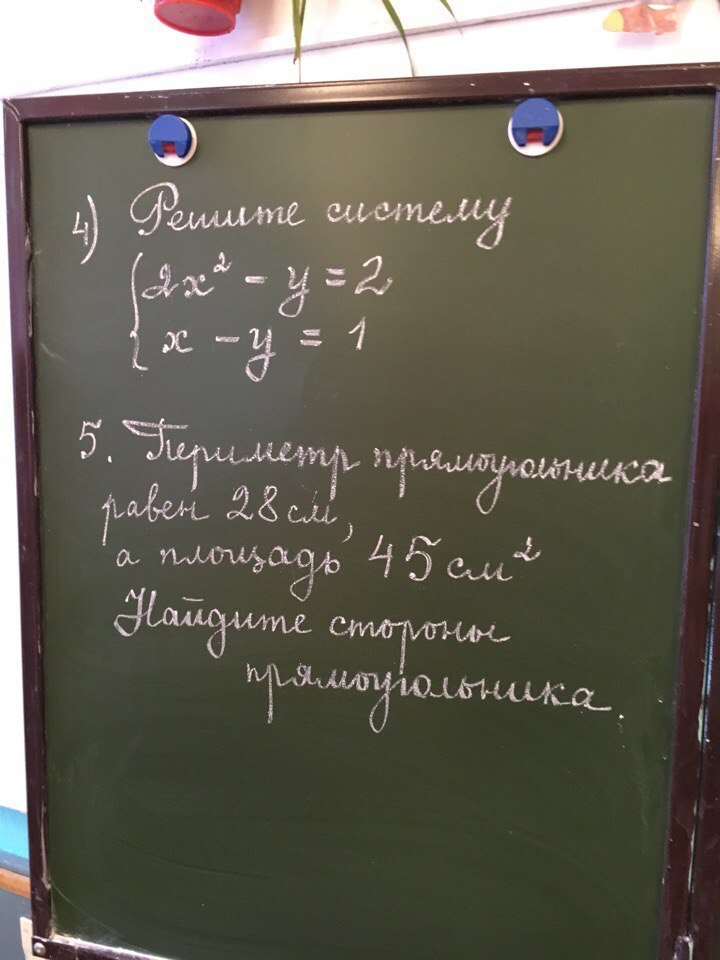 4) Решите систему
2x² - y = 2
x - y = 1
5. Периметр прямоугольника
равен 28 см,
а площадь 45 см²
Найдите стороны
прямоугольника.